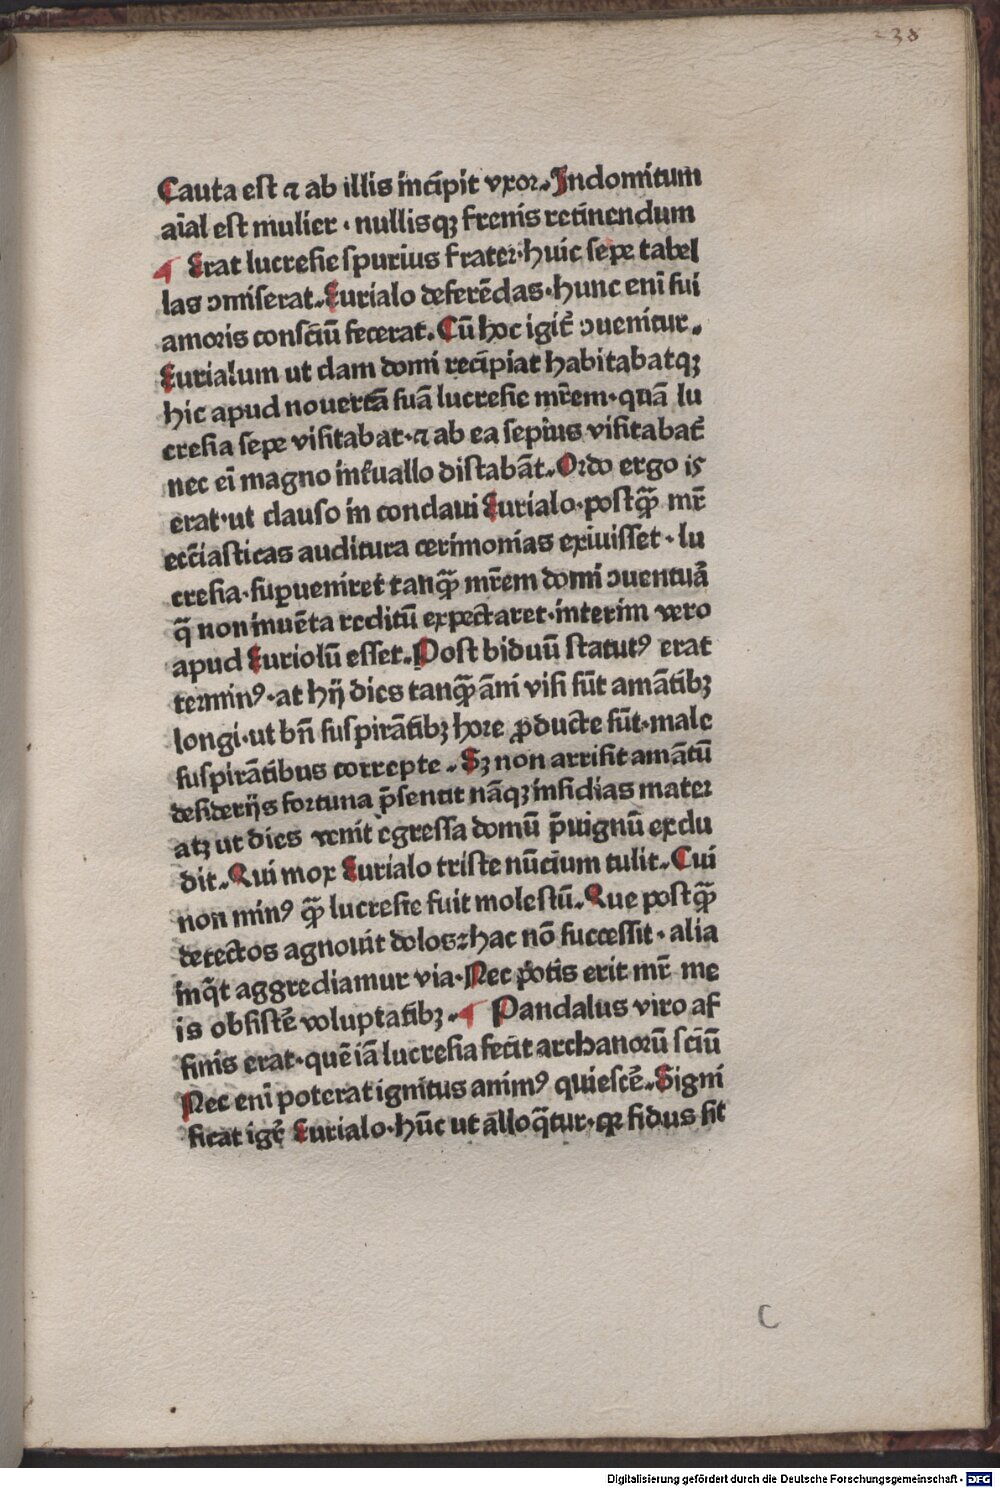 238
Cauta est ⁊ ab illis incipit vxor. Indomitum
aīal est mulier · nullisqꝫ frenis retinendum
¶ Erat lucresie spurius frater·huic sepe tabel
las ꝯmiserat. Eurialo deferēdas·hunc enī sui
amoris consciū fecerat. Cū hoc igit̄ ꝯuenitur.
Eurialum ut clam domi recipiat habitabatqꝫ
hic apud nouercā suā lucresie mr̄em·quā lu
cresia sepe visitabat·⁊ ab ea sepius visitabat̄
nec eī magno int̄uallo distabāt. Ordo ergo is
erat·ut clauso in conclaui Eurialo·postꝙ̄ mr̄
ecc̄iasticas auditura cerimonias exiuisset·lu
cresia·suꝑueniret tanꝙ̄ mr̄em domi ꝯuentuā
q̄ non inuēta reditū expectaret·interim vero
apud Euriolū esset. Post biduū statutꝰ erat
terminꝰ·at hij dies tanꝙ̄ āni visi sūt amātibꝫ
longi·ut bn̄ suspirātibꝫ hore ꝓducte sūt·male
suspirātibus correpte. Sꝫ non arrisit amātū
desiderijs fortuna p̄sentit nāqꝫ insidias mater
atqꝫ ut dies venit egressa domū p̄uignū exclu
dit. Qui mox Eurialo triste nūcium tulit. Cui
non minꝰ ꝙ̄ lucresie fuit molestū. Que postꝙ̄
detectos agnouit dolos⁊hac nō successit·alia
inq̄t aggrediamur via·Nec potis erit mr̄ me
is obsistē voluptatibꝫ. ¶ Pandalus viro af
finis erat·quē iā lucresia fecit archanorū sciū
Nec enī poterat ignitus animꝰ quiescē. Signi
ficat igit̄ Eurialo·hūc ut alloq̄tur·qꝛ fidus sit
C
Digitalisierung gefördert durch die Deutsche Forschungsgemeinschaft · DFG